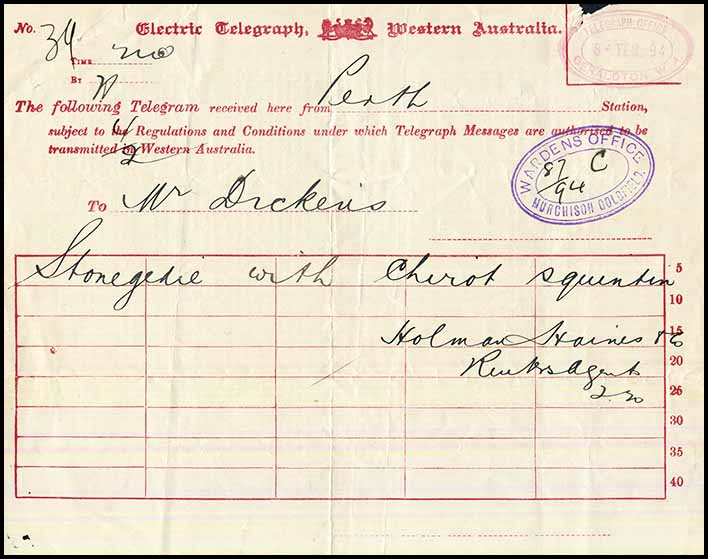 No. 34 Electric Telegraph, Western Australia.
TELEGRAPH OFFICE
TIME
BY
8 - FEB. 94
GERALDTON W.A.
The following Telegram received here from Perth Station,
subject to the Regulations and Conditions under which Telegraph Messages are authorised to be
transmitted in Western Australia.
WARDENS OFFICE
87/94 C
MURCHISON GOLDFIELD.
To Mr Dickens
Stonegedie with Cheroot squentin 5
10
Holman Haines & Co 15
Reuters Agents 20
2.20 25
30
35
40